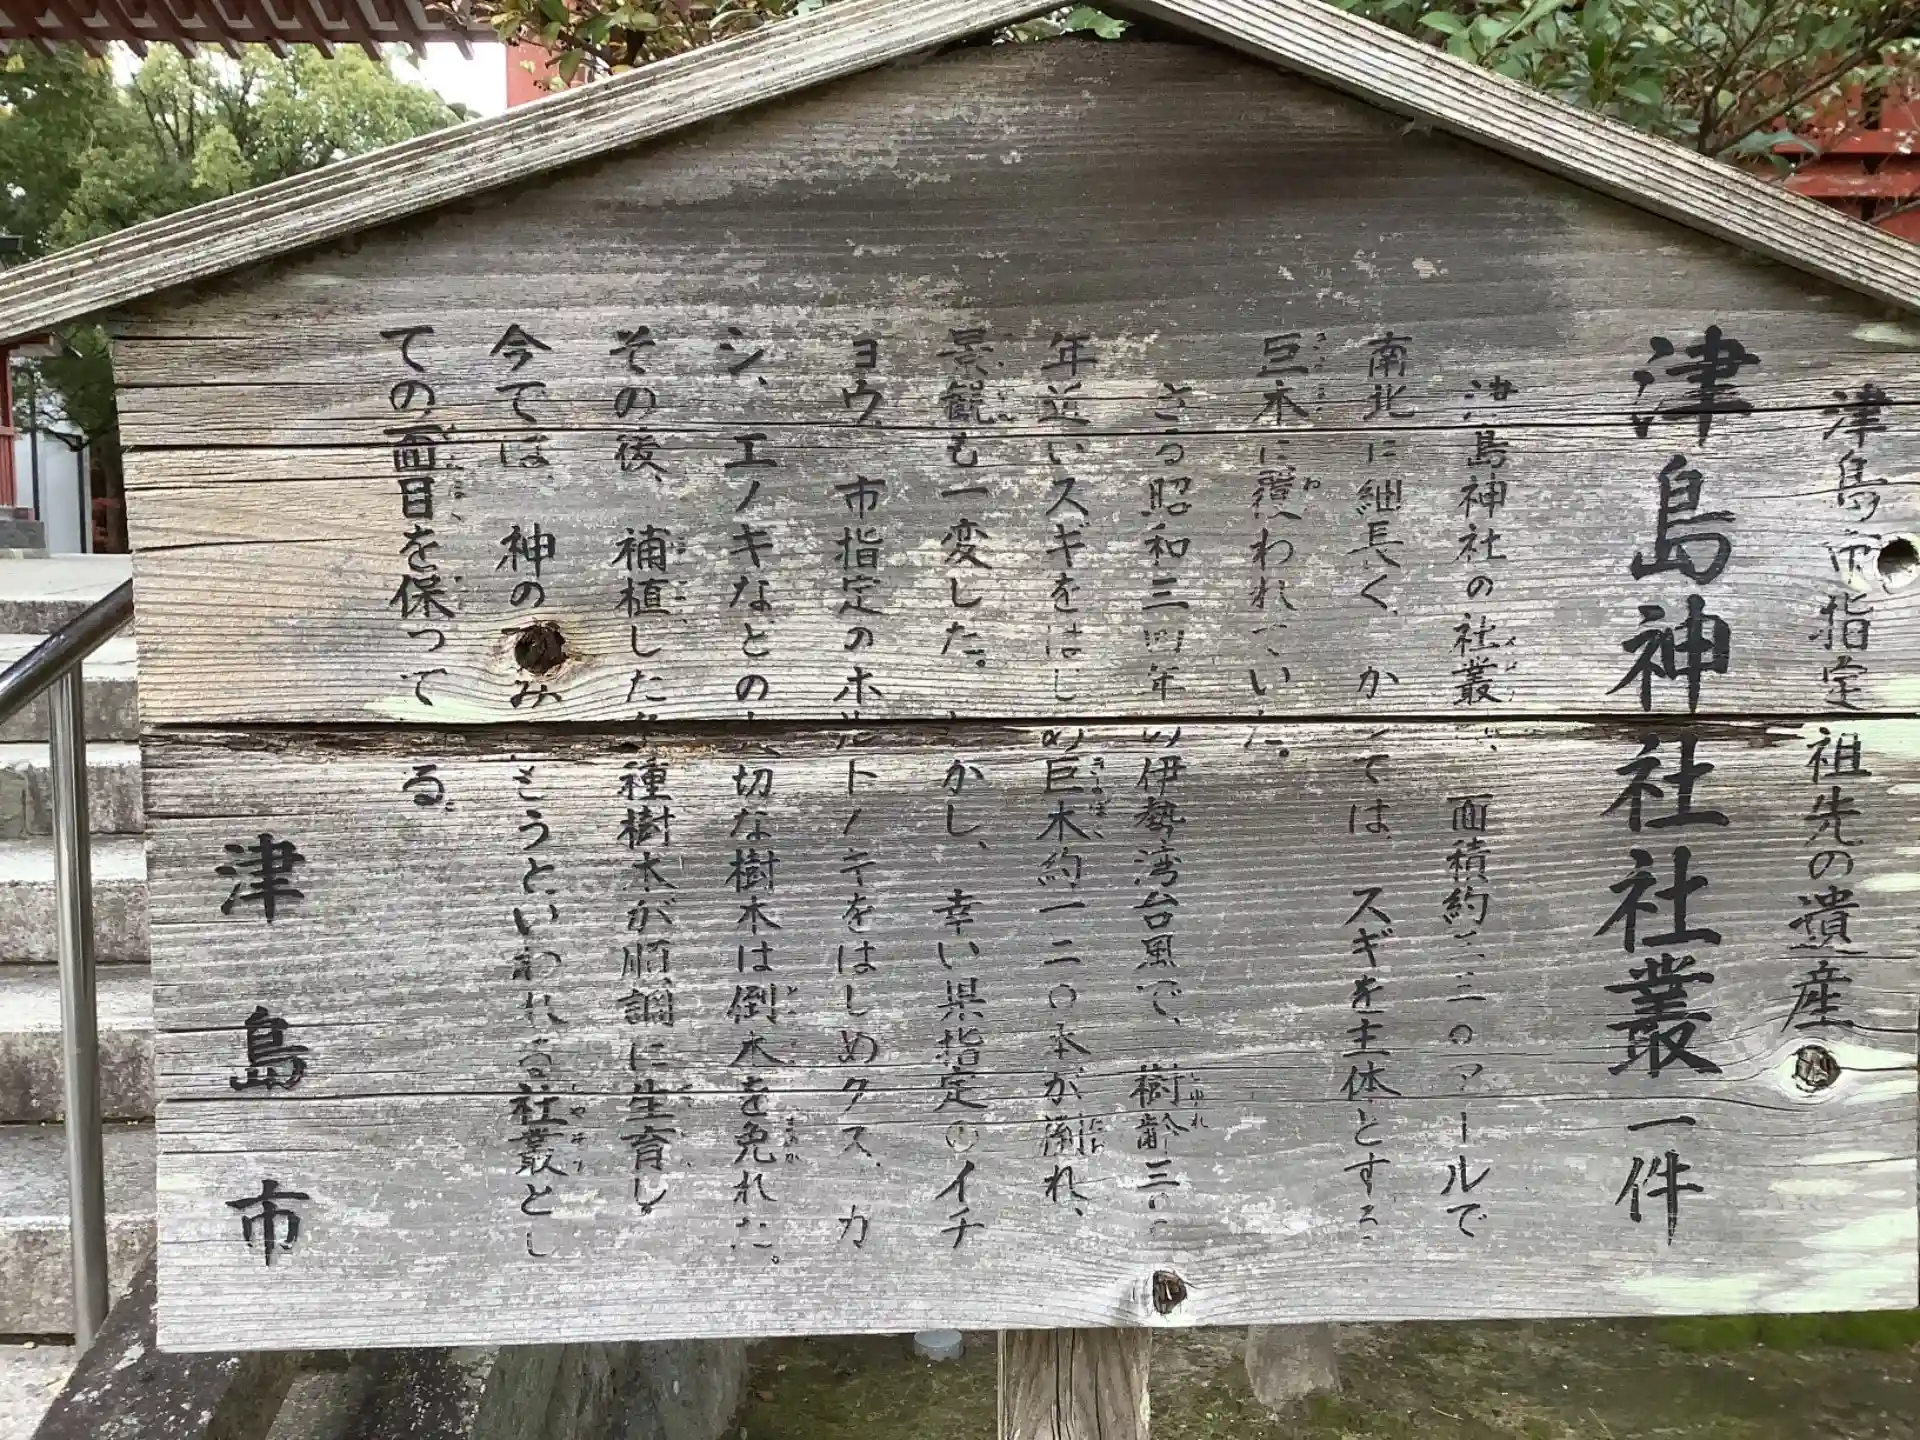 津島市指定 祖先の遺産
津島神社社叢一件
津島神社の社叢 面積約 二〇アールで
南北に細長く、かつては、スギを主体とする
巨木に覆われていた。
さる昭和三四年の伊勢湾台風で、樹齢三〇〇
年近いスギをはじめ巨木約一二〇本が倒れ、
景観も一変した。しかし、幸い県指定のイチ
ョウ、市指定のホルトノキをはじめクス、カ
シ、エノキなどの大切な樹木は倒木を免れた。
その後、補植した各種樹木が順調に生育し
今では、神の みともうといわれる社叢とし
ての面目を保っている。
津島市